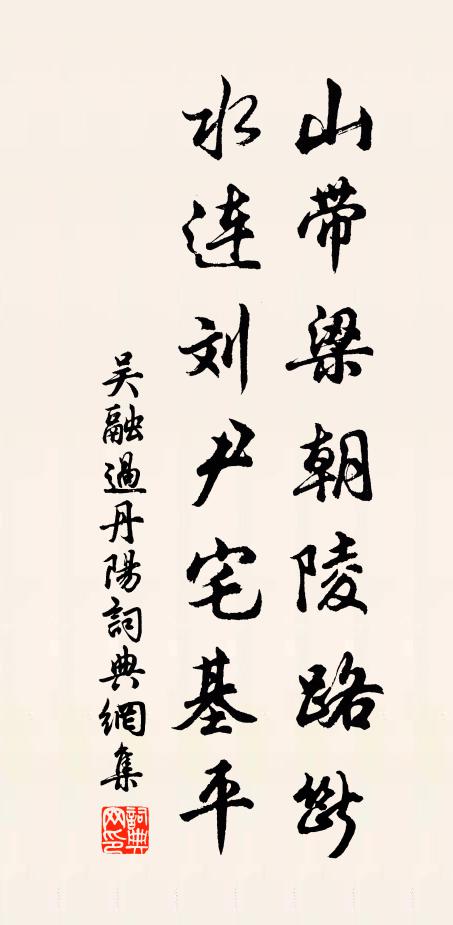 山带梁朝陵路断
水连刘尹宅基平
吴融過丹陽詞典網集
詞典
网印